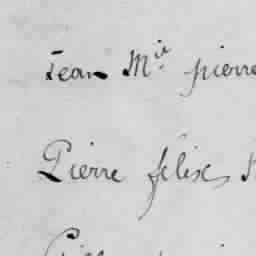 Jean M.ie pierre
Pierre félix